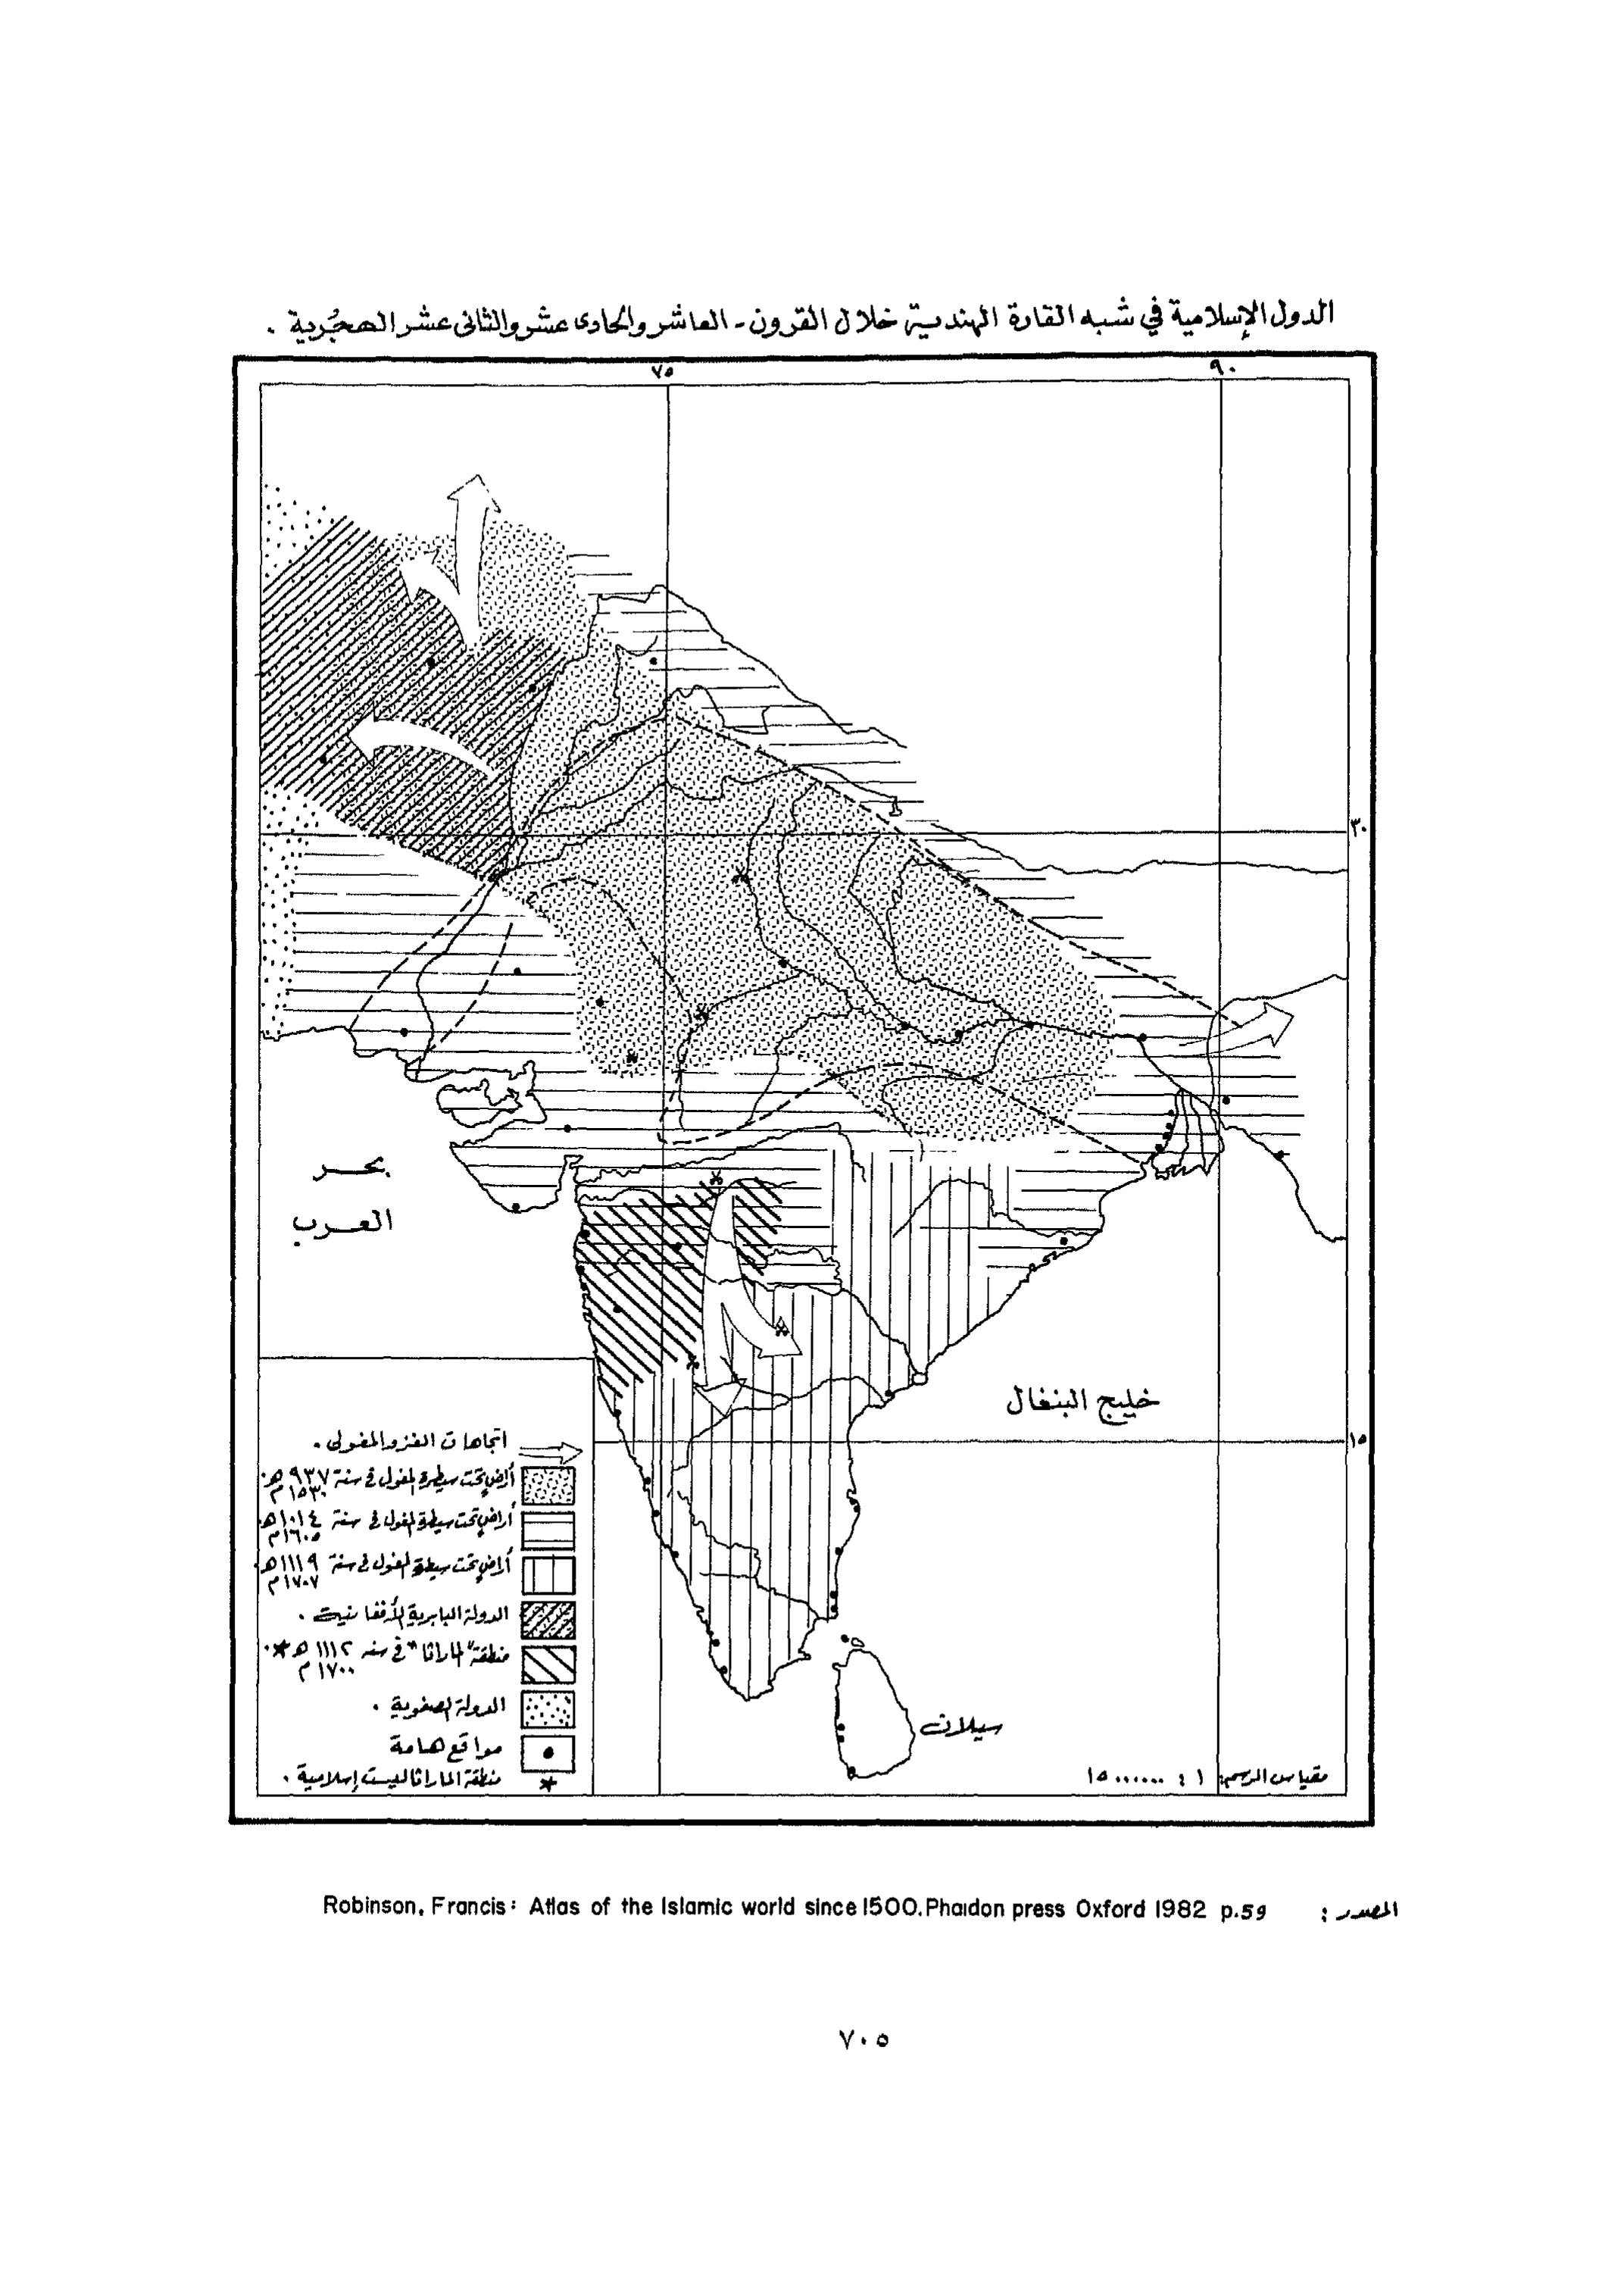 الدول الإسلامية في شبه القارة الهندية خلال القرون - العاشر والحادى عشر والثانى عشر الهجرية .
٧٥
٩٠
٣٠
بحر
العرب
خليج البنغال
١٥
اتجاهات الغزو المغولى .
أراضٍ تحت سيطرة المغول فى سنة ٩٣٧ هـ
١٥٣٠ م
أراضٍ تحت سيطرة المغول فى سنة ١٠١٤ هـ
١٦٠٥ م
أراضٍ تحت سيطرة المغول فى سنة ١١١٩ هـ
١٧٠٧ م
الدولة البابرية الأفغانية .
منطقة "الماراثا" فى سنة ١١١٢ هـ * .
١٧٠٠ م
الدولة الصفوية .
مواقع هامة
* منطقة الماراثا ليست إسلامية .
سيلان
مقياس الرسم: ١ : ١٥٠٠٠٠٠٠
المصدر : Robinson, Francis: Atlas of the Islamic world since 1500. Phaidon press Oxford 1982 p.59
٧٠٥